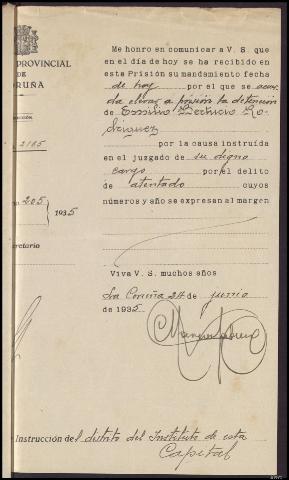 PROVINCIAL
DE
CORUÑA
2185
205 / 1935
Secretario
Me honro en comunicar a V. S. que
en el día de hoy se ha recibido en
esta Prisión su mandamiento fecha
de hoy por el que se acuer
da elevar a prisión la detención
de Emilio Ro
dríguez
por la causa instruída
en el juzgado de su digno
cargo por el delito
de atentado cuyos
números y año se expresan al margen
Viva V. S. muchos años
La Coruña 24 de junio
de 1935
Instrucción del distrito del Instituto de esta
Capital